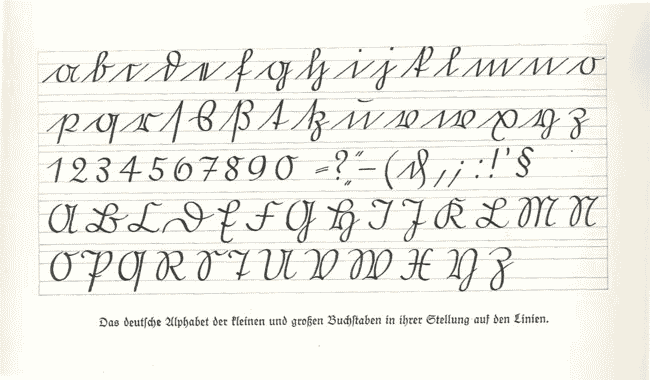 a b c d e f g h i j k l m n o
p q r ſ s ß t tz u v w x y z
1 2 3 4 5 6 7 8 9 0 = ? „“ – ( & , ; : ! ' §
A B C D E F G H I J K L M N
O P Q R S T U V W X Y Z
Das deutſche Alphabet der kleinen und großen Buchſtaben in ihrer Stellung auf den Linien.